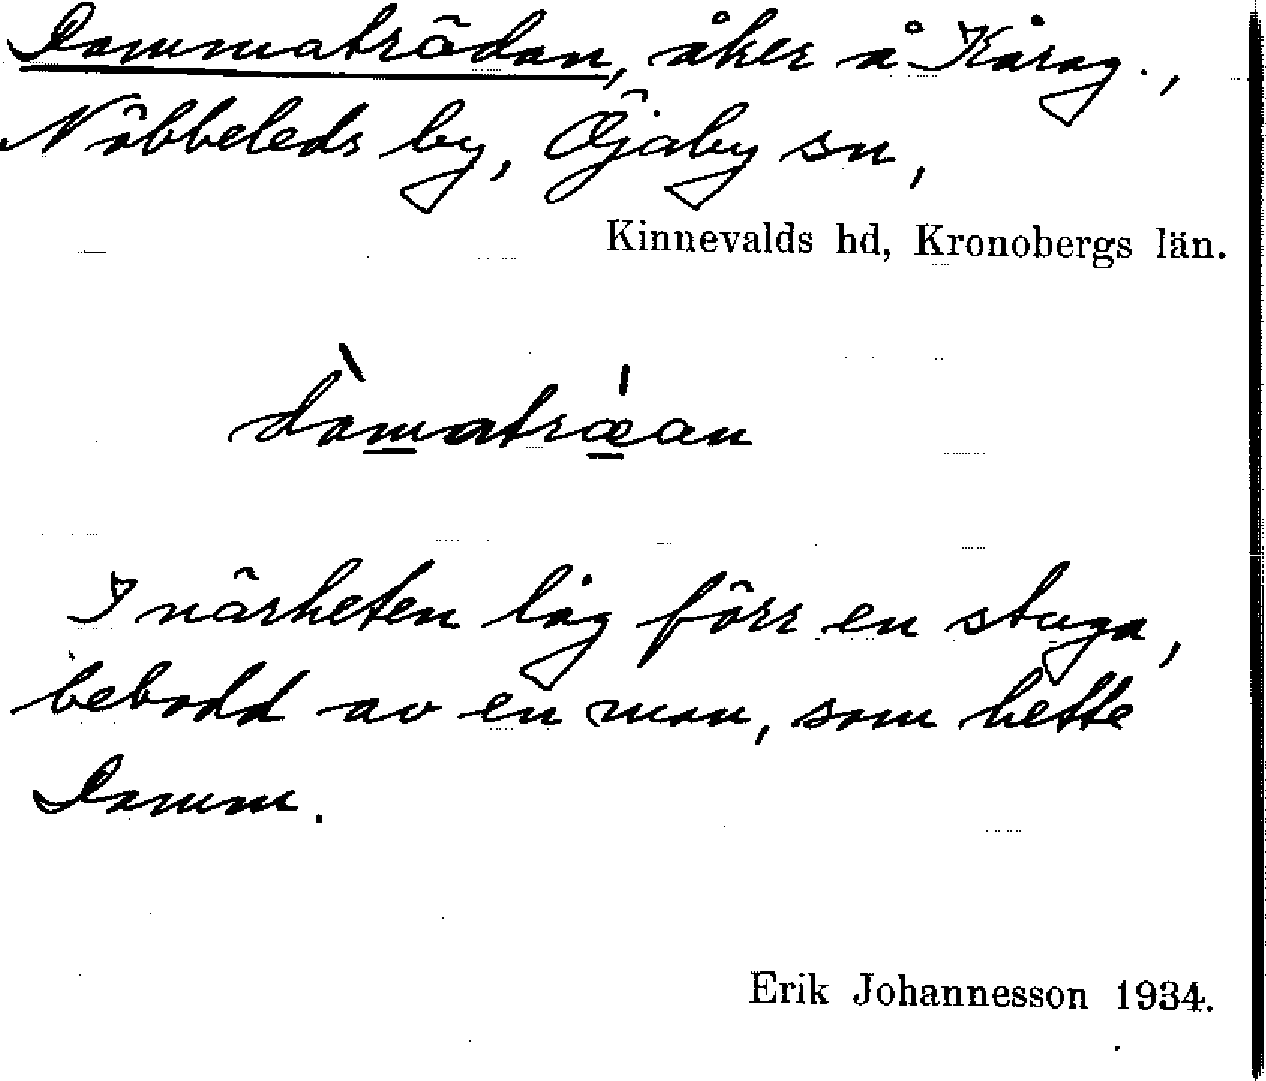 Dammaträdan, åker å Kårag.,
Nöbbeleds by, Öjaby sn,
Kinnevalds hd, Kronobergs län.
dàmatræ̍an
I närheten låg förr en stuga,
bebodd av en man, som hette
Damm.
Erik Johannesson 1934.